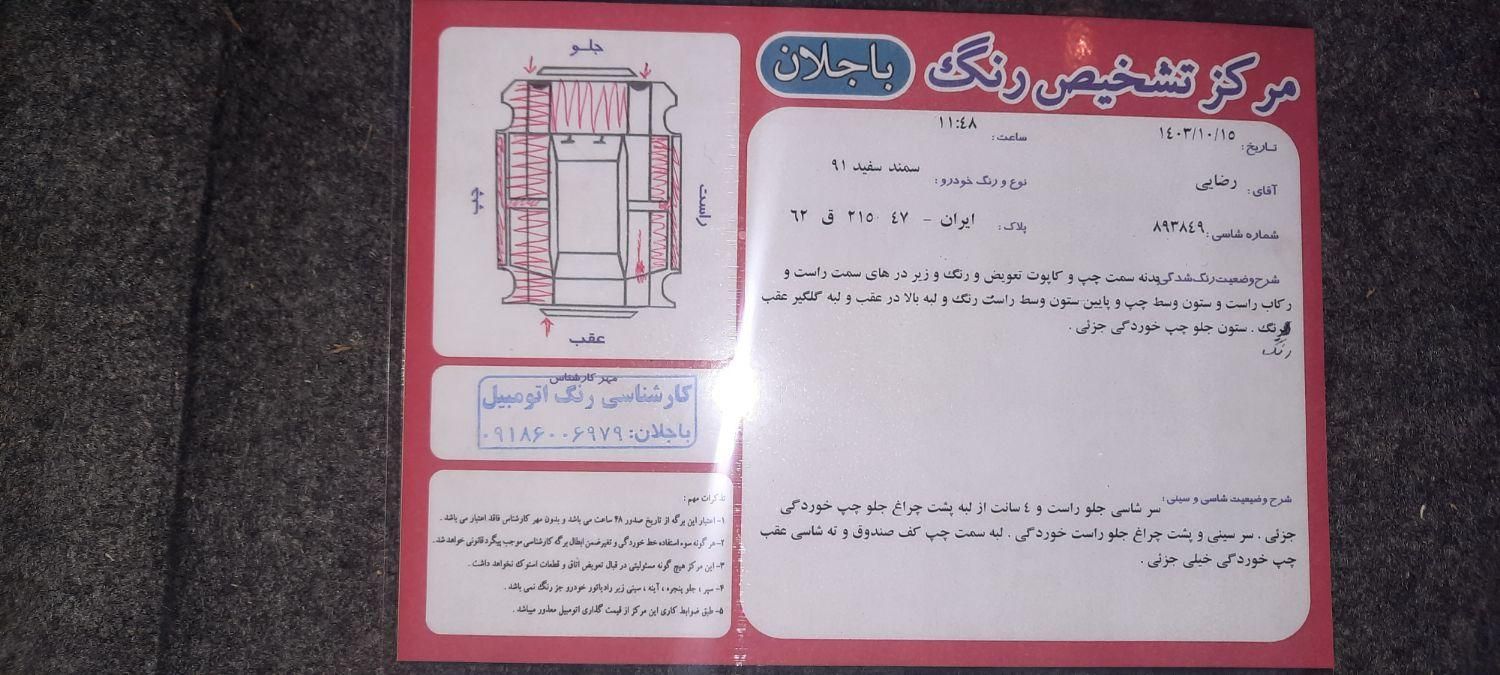 مرکز تشخیص رنگ باجلان
تاریخ: ۱۴۰۳/۱۰/۱۵ ساعت: ۱۱:۴۸
آقای: رضایی نوع و رنگ خودرو: سمند سفید ۹۱
شماره شاسی: ۸۹۳۸۴۹ پلاک: ایران - ۴۷ ۲۱۵ ق ۶۲
شرح وضعیت رنگ شدگی: بدنه سمت چپ و کاپوت تعویض و رنگ و زیر در های سمت راست و
رکاب راست و ستون وسط چپ و پایین ستون وسط راست رنگ و لبه بالا در عقب و لبه گلگیر عقب
رنگ . ستون جلو چپ خوردگی جزئی .
رنگ
شرح وضیعیت شاسی و سینی: سر شاسی جلو راست و ٤ سانت از لبه پشت چراغ جلو چپ خوردگی
جزئی . سر سینی و پشت چراغ جلو راست خوردگی . لبه سمت چپ کف صندوق و ته شاسی عقب
چپ خوردگی خیلی جزئی .
جلو
چپ
راست
عقب
مهر کارشناس
کارشناسی رنگ اتومبیل
باجلان: ۰۹۱۸۶۰۰۶۹۷۹
تذکرات مهم :
۱- اعتبار این برگه از تاریخ صدور ۴۸ ساعت می باشد و بدون مهر کارشناس فاقد اعتبار می باشد .
۲- هر گونه سوء استفاده خط خوردگی و تغیرضمن ابطال برگه کارشناسی موجب پیگرد قانونی خواهد شد.
۳- این مرکز هیچ گونه مسئولیتی در قبال تعویض اتاق و قطعات استوک نخواهد داشت .
۴- سپر ، جلو پنجره ، آینه ، سینی زیر رادیاتور خودرو جز رنگ نمی باشد .
۵- طبق ضوابط کاری این مرکز از قیمت گذاری اتومبیل معذور میباشد .